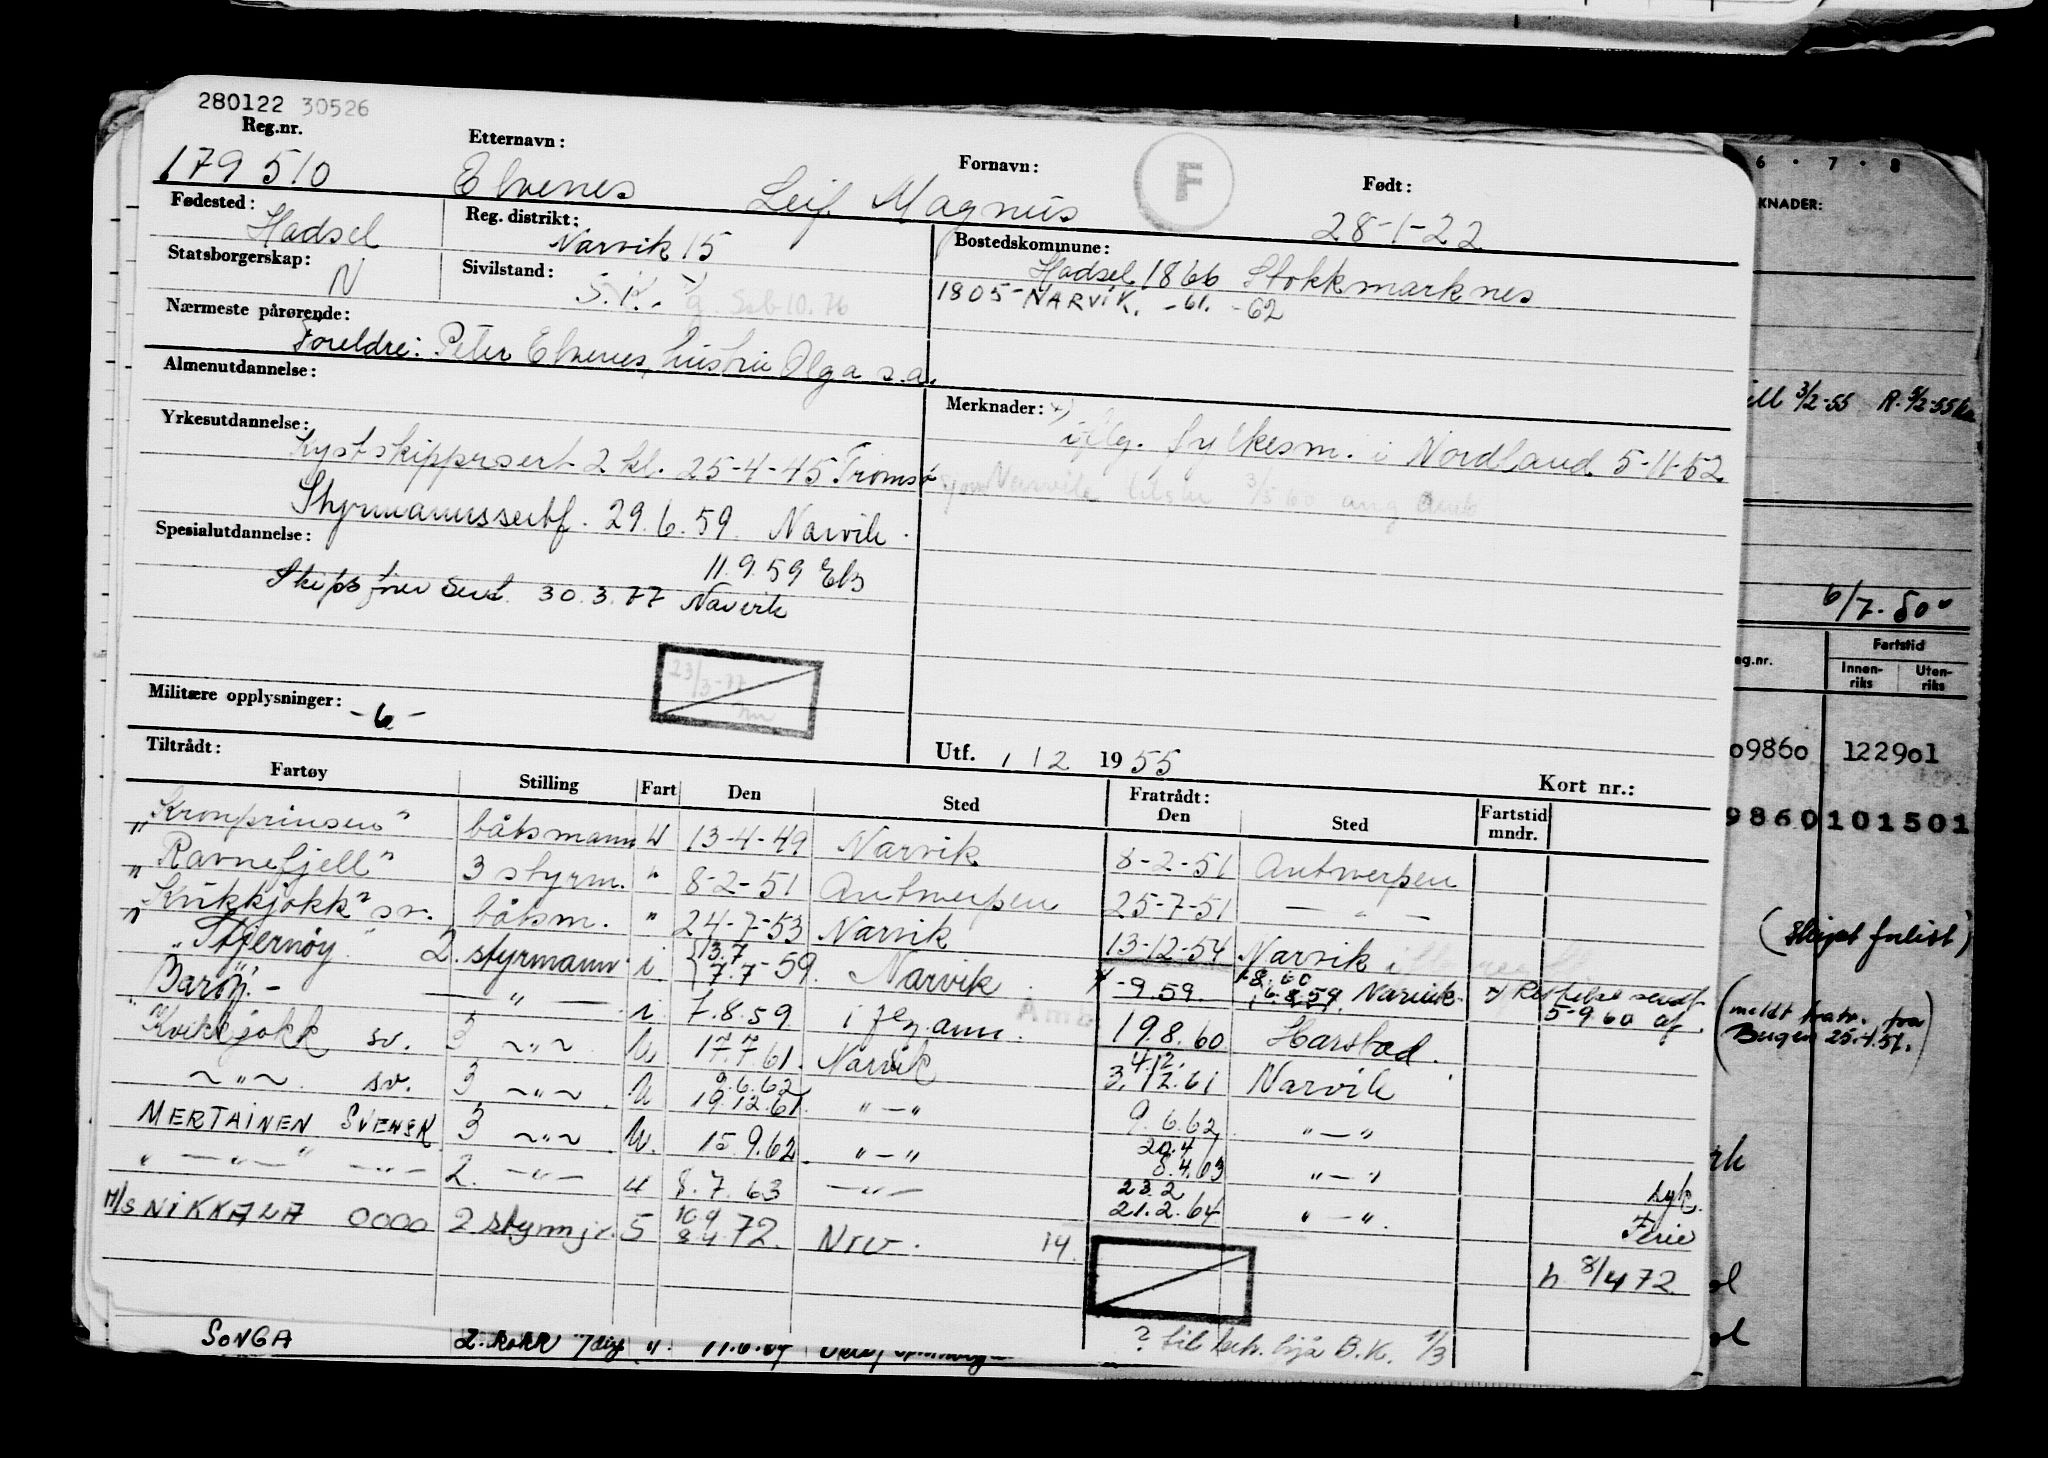 280122 30526
Reg.nr. Etternavn: Fornavn: Født:
179510 Elvenes Leif Magnus F 28-1-22
Fødested: Reg. distrikt: Bostedskommune:
Hadsel Narvik 15 Hadsel 1866 Stokkmarknes
Statsborgerskap: Sivilstand: 1805 - NARVIK. -61. -62
N
Nærmeste pårørende:
Foreldre: Peter Elvenes, hustru Olga s.a.
Almenutdannelse: Merknader:
iflg. fylkesm. i Nordland 5-11-52
Yrkesutdannelse:
Kystskippersert 2 kl. 25-4-45 Tromsø
Styrmannssertf. 29.6.59. Narvik.
Spesialutdannelse:
11.9.59
Skipsfører Sert. 30.3.77 Narvik
23/3-77
Militære opplysninger: -6-
Tiltrådt: Utf. 1 12 1955 Kort nr.:
Fartøy Stilling Fart Den Sted Fratrådt: Den Sted Fartstid mndr.
"Kronprinsen" båtsmann u 13-4-49 Narvik 8-2-51 Antwerpen
"Ravnefjell" 3 styrm. " 8-2-51 Antwerpen 25-7-51 — " —
"Kvikkjokk" sv. båtsm. " 24-7-53 Narvik 13-12-54 Narvik
"Stjernøy" 2. styrmann i 13.7 7.7-59. Narvik -9.59. Narvik
Barøy. — " — i 7.8.59 19.8.60 Harstad.
5-9.60
Kvikkjokk sv. 3 ~"~ U 17.7.61. Narvik 4.12. 3.12.61 Narvik
~"~. sv. 3 ~"~ U 9.6.62 19.12.61. "—" 9.6.62 "—"
MERTAINEN SVENSK 3 ~"~ U. 15.9.62. "—" 20.4 8.4.63 "—" syk.
"—"—" —"— 2. —"— u 8.7.63 —"— 23.2 21.2.64 "—". Ferie
M/S NIKKALA 0000 2 styrm jr. 5 10.9 8.4.72. Nrv. 14. h 8/4 72
SONGA ? til beh. hja B.K. 1/3
6 · 7 · 8
KNADER:
ill 3/2-55 R. 5/2-55
6/7-50
Fartstid
eg.nr. Innen-riks Uten-riks
09860 122901
9860 101501
(Skipet forlist)
(meldt fratr. fra
Bergen 25.4.51.)